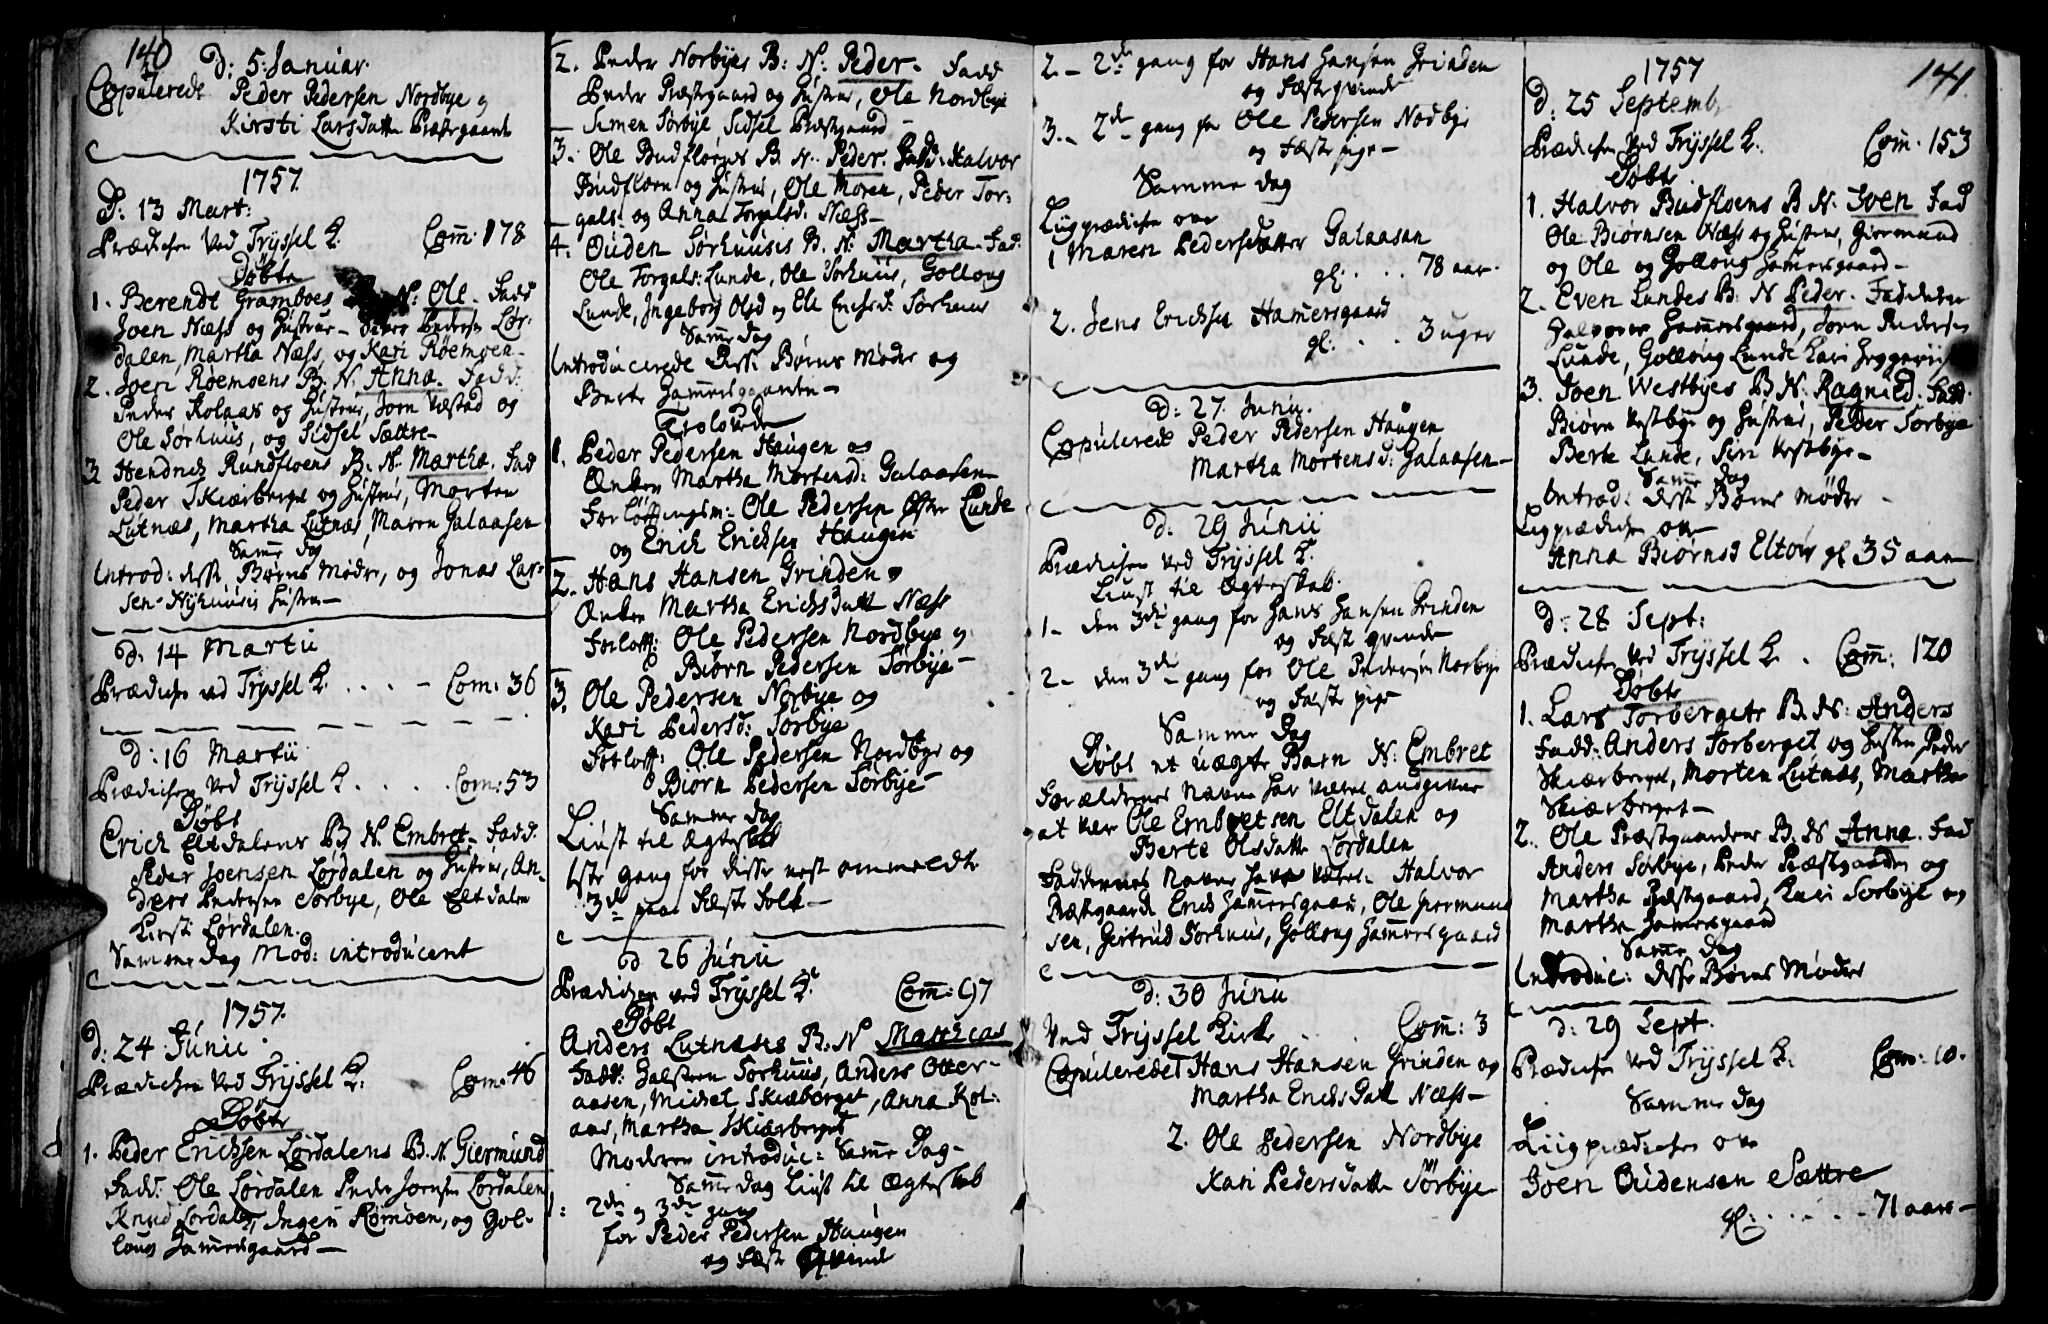 140
d: 5 Januar.
Copulerede Peder Pedersen Nordbye og
Kirsti Larsdatter Præstgaard
1757.
D: 13 Mart:
Prædichen ved Tryssel K. Com: 178
Døbte
1. Berendt Gramboes B. N: Ole. Fadd
Joen Næss og Hustrue - Peder Pedersen Lør-
dalen, Martha Næss, og Kari Røemoen-
2. Joen Røemoens B. N. Anna. Fadd:
Peder Kolaas og Hustrue, Joen og
Ole Sørhuus, og Sidsel Sættre-
3 Hendrich Rundfloens B. N. Martha. Fad
Peder Skiærberget og Hustrue, Morten
Lutnæs, Martha Lutnæs, Maren Galaasen
Samme dag
Introd: disse Børns Mødre, og Jonas Lar-
sen Nyhuusis Hustrue-
d: 14 Martii
Prædichen ved Tryssel K. . . . - Com: 36
d: 16 Martii
Prædichen ved Tryssel K . . . . Com: 53
Døbt
Erich Eltdalens B. N. Embret. Fadd.
Peder Joensen Lørdalen og Hustrue, An-
ders Pedersen Sørbye, Ole Eltdalen
Kirsti Lørdalen.
Samme dag Mod: introduceret
1757.
d: 24 Junii
Prædichen ved Tryssel K: Com: 46
Døbte
1. Peder Erichsen Lørdalens B. N. Giermund
Fadd: Ole Lørdalen Peder Joensen Lørdalen
Knud Lørdalen, Ingeri Rømoen, og Gol-
loug Hamersgaard-
2. Peder Norbyes B: N: Peder. Fadd
Peder Præstgaard og Hustrue, Ole Nordbye
Simen Sørbye Sidsel Præstgaard -
3. Ole Budfloens B. N. Peder. Fadd: Halvor
Budfloen og Hustrue, Ole Moren, Peder Tor-
gals: og Anna Torgalsd: Næss-
4. Ouden Sørhuusis B. N: Martha. Fad:
Ole Torgals: Lunde, Ole Sørhuus, Golloug
Lunde, Ingeborg Olsd og Ele Erichsd: Sørhuus
Samme dag
Introducerede disse Børns Mødre og
Berte Hammersgaarden-
Trolovede
1. Peder Pedersen Haugen og
Enken Martha Mortensd: Galaasen
Forløftingsm: Ole Pedersen Østre Lunde
og Erich Erichsen Haugen
2. Hans Hansen Grinden og
Enken Martha Erichsdatt Næss
Forloft: Ole Pedersen Nordbye og
Biørn Pedersen Sørbye-
3. Ole Pedersen Norbye og
Kari Pedersd: Sørbye
Forloft: Ole Pedersen Nordbye og
Biørn Pedersen Sørbye-
Samme dag
Liust til Ægteskab
1ste gang for disse nest ommeldte
3de paar Fæste Folk-
d 26 Junii
Prædichen ved Tryssel K: Com: 97
Døbt
Anders Lutnæsis B: N Matthias
Fadd: Halsteen Sørhuus, Anders Otter-
aasen, Michel Skiæberget, Anna Kol-
aas, Martha Skiærberget
Moderen introduc: Samme Dag-
Samme dag Liust til Ægteskab
1: 2de og 3de gang
for Peder Pedersen Haugen
og Fæste Qvinde
2. - 2de gang for Hans Hansen Grinden
og Fæsteqvinde
3. - 2de gang for Ole Pedersen Nodbye
og Fæste pige-
Samme dag
Liigprædichen over
1 Maren Pedersdatter Galaasen
gl: . . . . 78 aar.
2. Jens Erichsen Hamersgaard
gl: . . . 3 uger
d: 27. Junii.
Copulerede Peder Pedersen Haugen
Martha Mortensd: Galaasen-
d: 29 Junii
Prædichen ved Tryssel K.
Liust til Ægteskab.
1- den 3de gang for Hans Hansen Grinden
og Fæst qvinde
2- den 3de gang for Ole Pedersen Norbye
og Fæste pige
Samme Dag
Døbt et uægte Barn N: Embret
Forældrenes Navne har været angiven
at være Ole Embretsen Eltdalen og
Berte Olsdatter Lørdalen
Faddernes Navne have været- Halvor
Præstgaard Erich Hammersgaard, Ole Hermund
sen, Giertrud Sørhuus, Golloug Hammersgaard
d: 30 Junii
Ved Tryssel Kirke . . Com: 3
Copuleredes Hans Hansen Grinden og
Martha Erichsdatt Næss-
2. Ole Pedersen Nordbye
Kari Pedersdatter Sørbye-
1757
141.
D: 25 Septemb.
Prædichen ved Tryssel K. Com: 153
Døbte
1. Halvor Budfloens B. N: Joen Fad
Ole Biørnsen Næss og Hustrue, Giermund
og Ole og Golloug Hamersgaard-
2. Even Lundes B: N Peder. Fadderne
Halvor Hammersgaard, Joen Pedersen
Lunde, Golloug Lunde Kari
3. Joen Westbyes B. N. Ragnild. Fadd.
Biørn Vestbye og Hustrue, Peder Sørbye
Berte Lunde, Siri Vestbye-
Samme dag
Introd: disse Børns Mødre -
Liigprædichen over
Anna Biørnsd Eltdøer gl 35 aar-
d: 28 Sept:
Prædichen ved Tryssel K. . Com: 120
Døbte
1. Lars Torbergets B. N: Anders
Fadd: Anders Torberget og Hustrue Peder
Skiærberget, Morten Lutnæs, Martha
Skiærberget-
2. Ole Præstgaardens B. N Anna. Fad
Anders Sørbye, Peder Præstgaarden og
Martha Præstgaard, Kari Sørbye og
Martha Hamersgaard
Samme Dag
Introduc: disse Børns Mødre
d: 29 Sept.
Prædichen ved Tryssel K: Com: 10.
Samme dag
Liigprædichen over
Joen Oudensen Sættre
gl: . . . . . 71 aar-